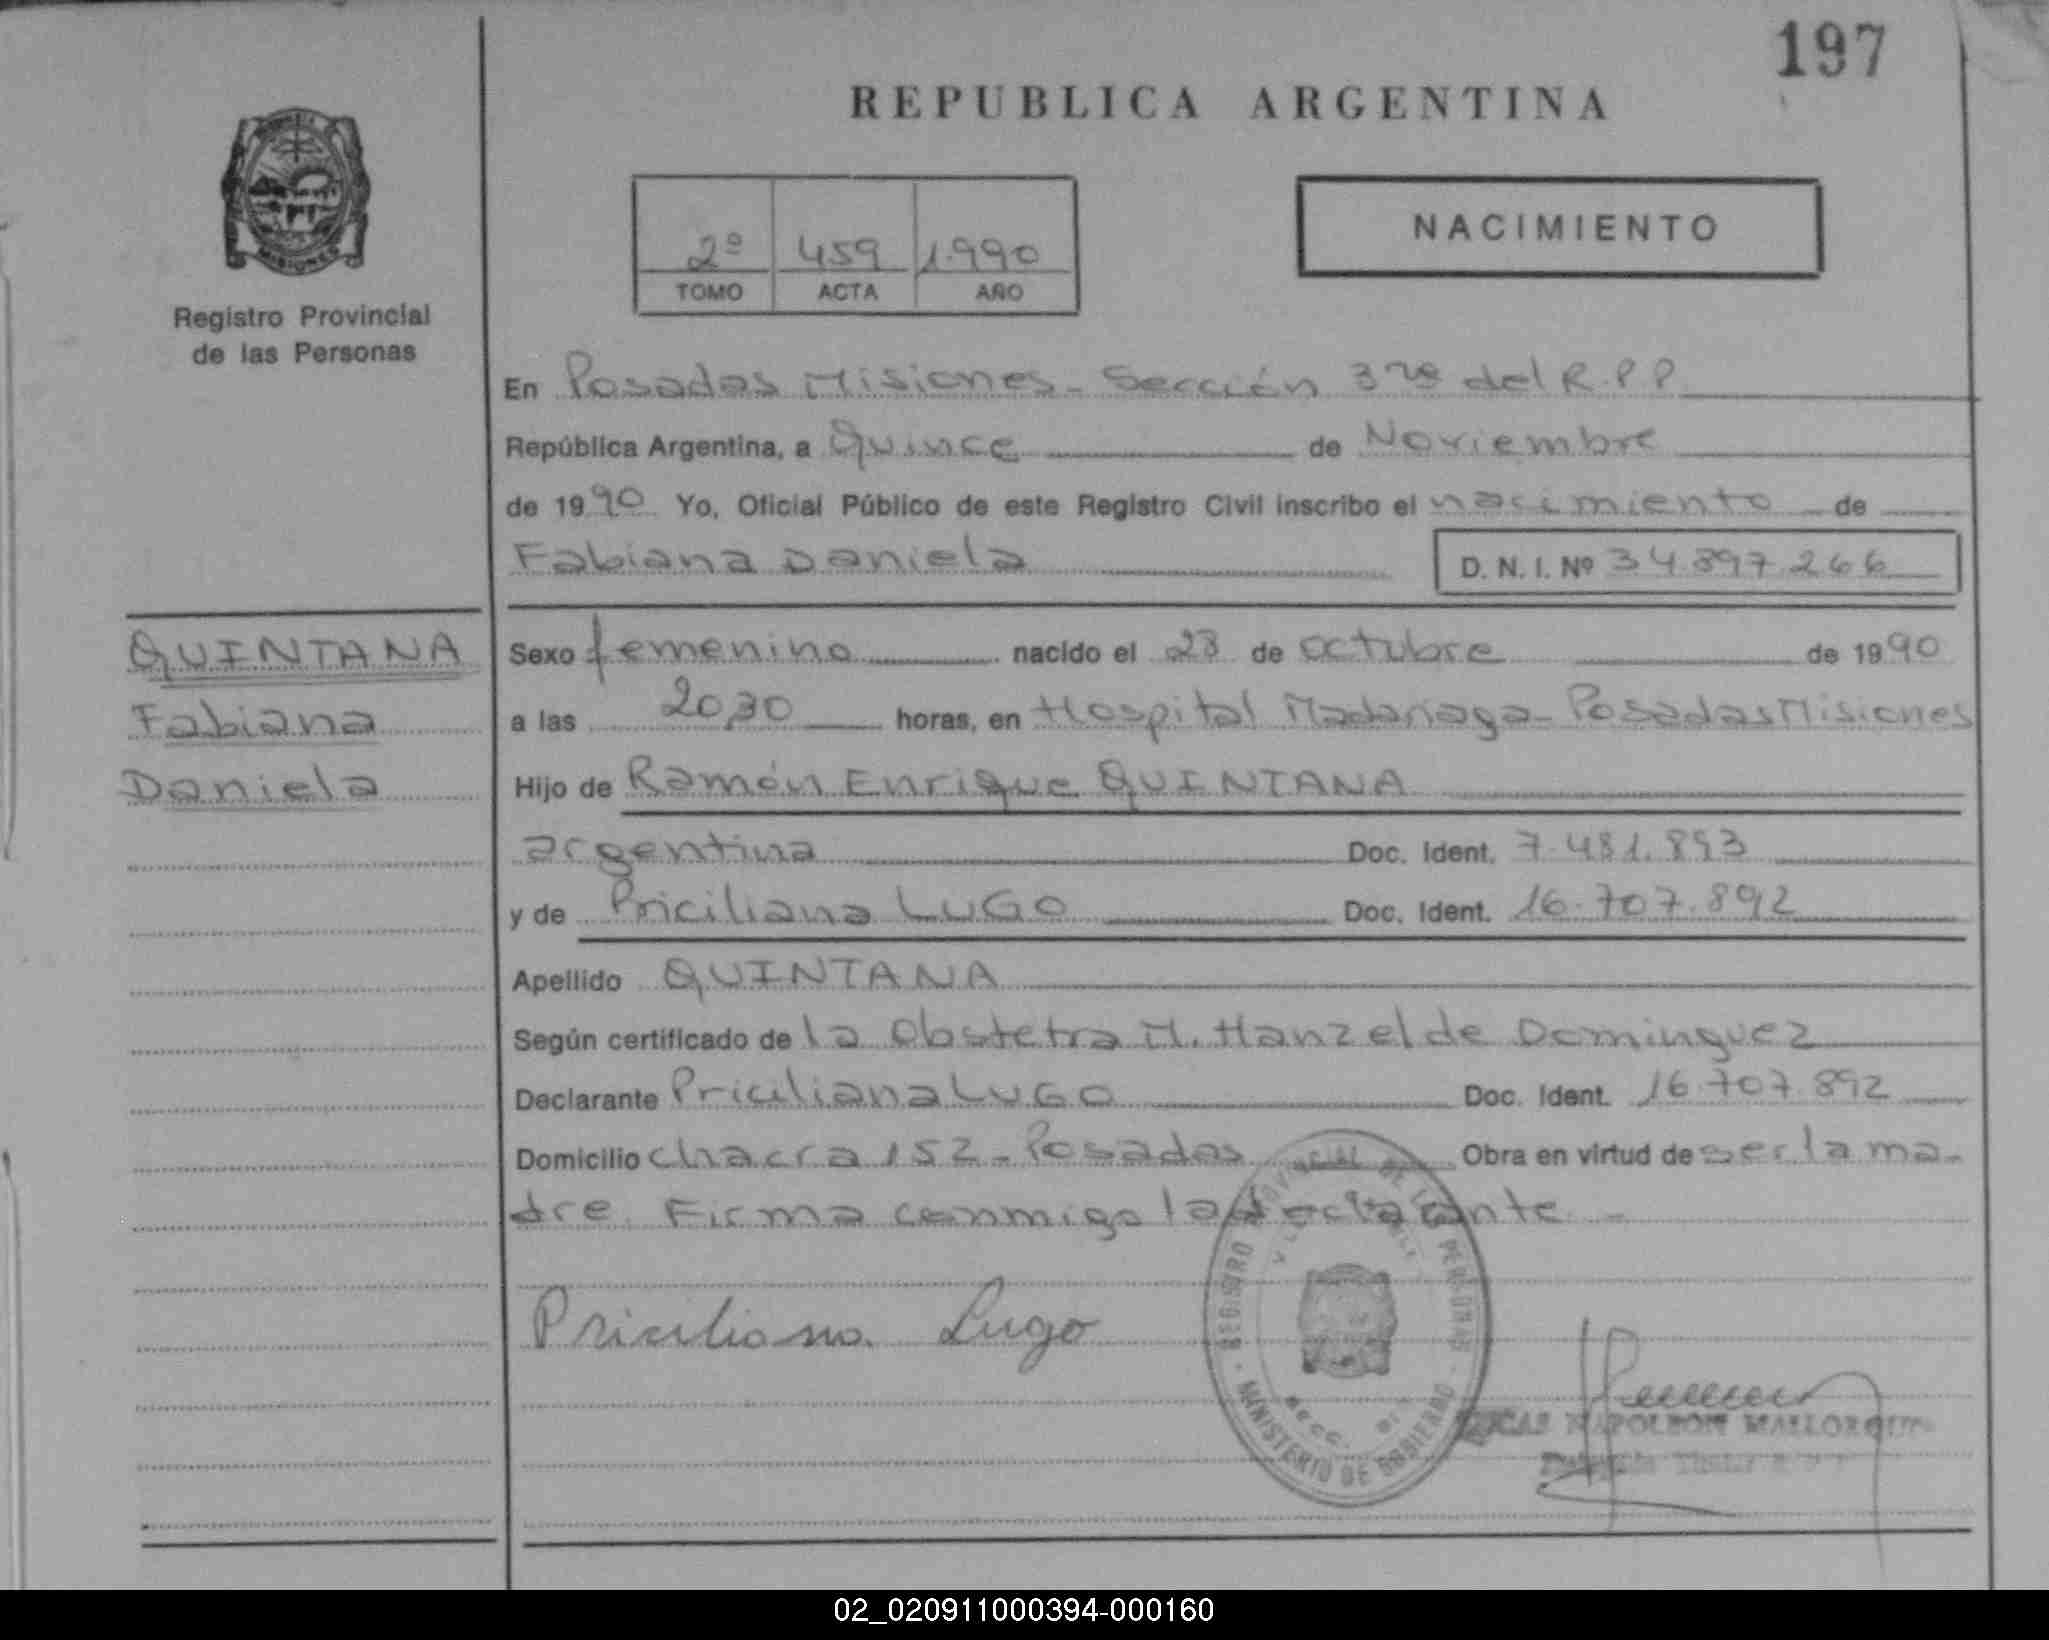 197
REPUBLICA ARGENTINA
MISIONES
Registro Provincial
de las Personas
2º 459 1.990
TOMO ACTA AÑO
NACIMIENTO
En Posadas Misiones - Sección 3ra del R.P.P.
República Argentina, a Quince de Noviembre
de 1990 Yo, Oficial Público de este Registro Civil inscribo el nacimiento de
Fabiana Daniela D. N. I. Nº 34.897.266
QUINTANA
Fabiana
Daniela
Sexo femenino nacido el 23 de octubre de 1990
a las 20,30 horas, en Hospital Madariaga - Posadas Misiones
Hijo de Ramón Enrique QUINTANA
argentina Doc. Ident. 7.481.893
y de Priciliana LUGO Doc. Ident. 16.707.892
Apellido QUINTANA
Según certificado de la Obstetra M. Hanzel de Dominguez
Declarante Priciliana LUGO Doc. Ident. 16.707.892
Domicilio chacra 152 - Posadas Obra en virtud de ser la ma-
dre. Firma conmigo la declarante -
Prisiliana Lugo
REGISTRO PROVINCIAL DE LAS PERSONAS
MINISTERIO DE GOBIERNO
LUCAS NAPOLEON
02_020911000394-000160